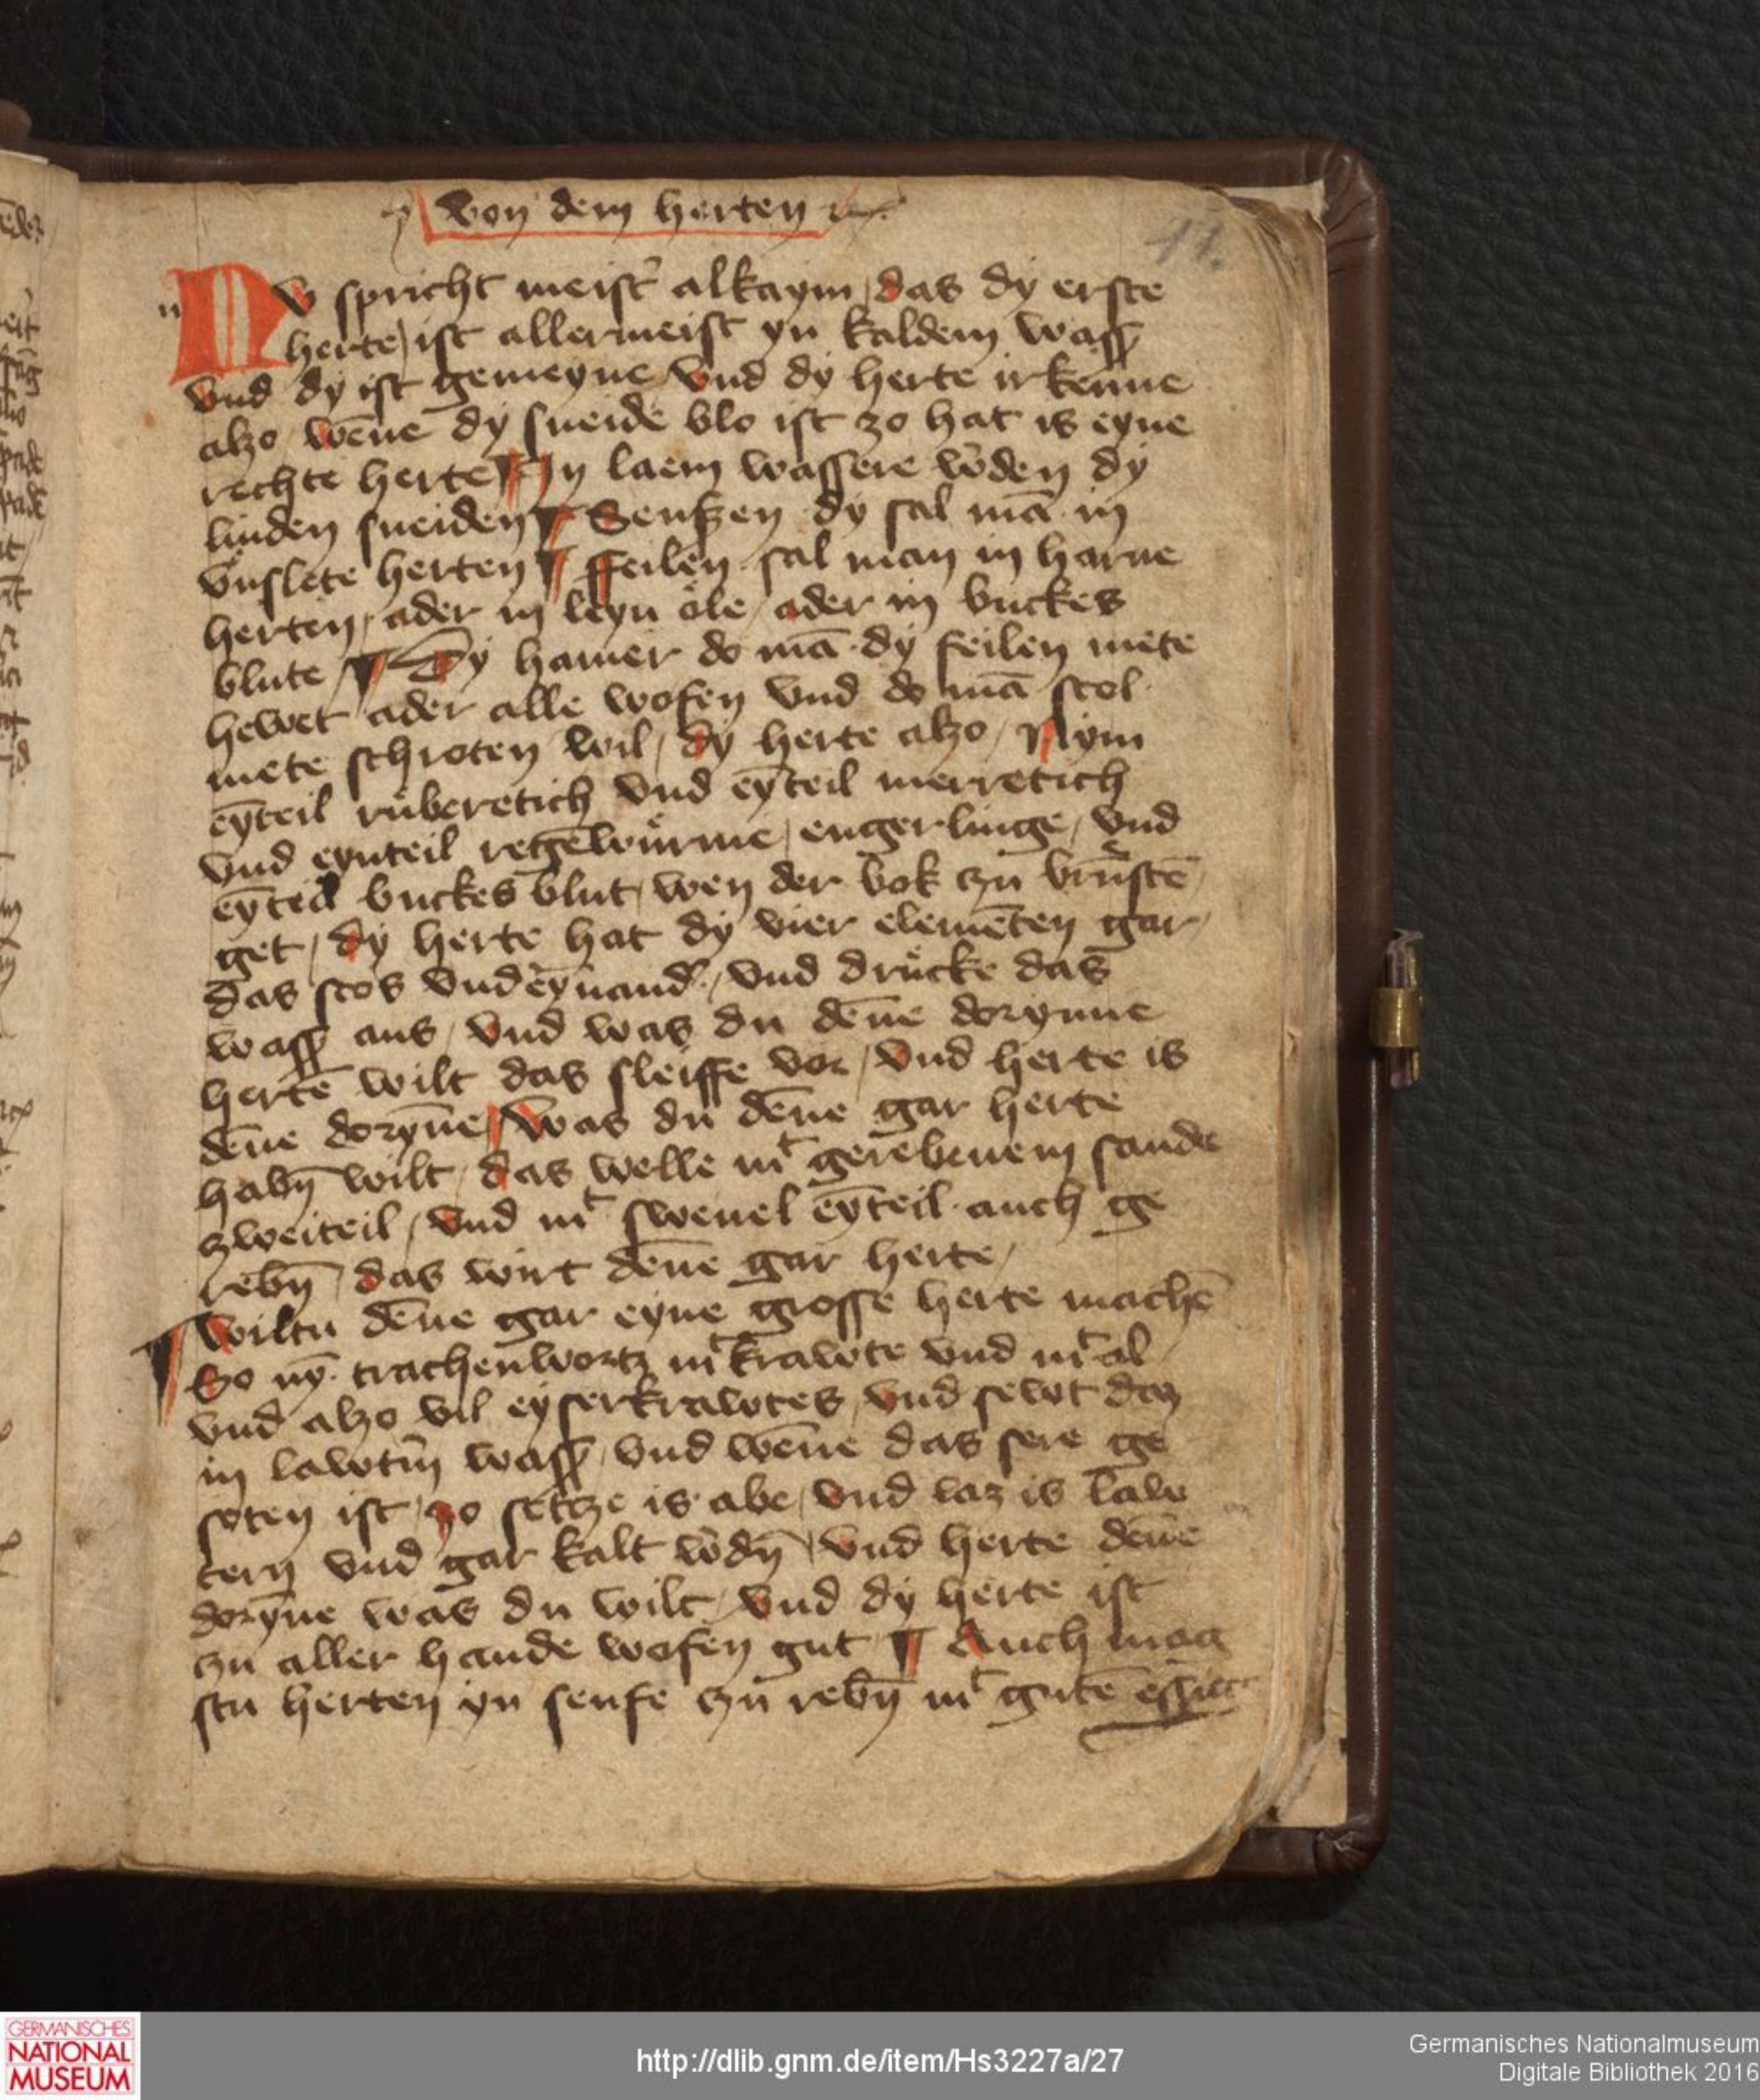 Von dem herten ꝛc.
11.
NV spricht meist̉ alkaym / das dy erste
herte / ist allermeist yn kaldem wass̉
vnd dy ist gemeyne vnd dy herte irkenne
alzo / wēne dy sneide blo ist zo hat is eyne
rechte herte ¶ In laem wassere w̉den dy
linden sneiden ¶ Senszen dy sal mā in
vnslete herten ¶ ffeilen sal man in harne
herten / ader in leyn öle / ader in buckes
blute / ¶ Dy hamer do mā dy feilen mete
hewet ader alle wofen vnd do mā stol
mete schroten wil / dy herte alzo / Nym
ey̅teil ruberetich vnd eyteil merretich
vnd eynteil regēwurme / engerlinge / vnd
eyteil buckes blut / wen der bok zu brunste
get / dy herte hat dy vier elemēten gar /
das stos vnd̉eynand̉ / vnd drucke das
wass̉ aus / vnd was du dēne dorynne
hertē wilt das sleiffe vor / vnd herte is
dēne doryne ¶ Was du dēne gar herte
habn̄ wilt / das welle mͭ gerebenem sande
zweiteil / vnd mͭ sweuel eyteil auch ge
rebn̄ / das wirt dēne gar herte /
¶ Wiltu dēne gar eyne grosse herte machē
So ny̅ trachenwortz mͭ krawte vnd mͭ al
vnd alzo vil eyserkrawtes / vnd sewt daz
in lawtm̉ wass̉ / vnd wēne das sere ge
soten ist / zo setcze is abe / vnd laz is law
tern vnd gar kalt w̉dn̄ / vnd herte dēne
doryne was du wilt / vnd dy herte ist
zu aller hande wofen gut ¶ Auch mag
stu herten yn senfe zu rebn̄ mͭ gutē essige
GERMANISCHES
NATIONAL
MUSEUM
http://dlib.gnm.de/item/Hs3227a/27
Germanisches Nationalmuseum
Digitale Bibliothek 2016